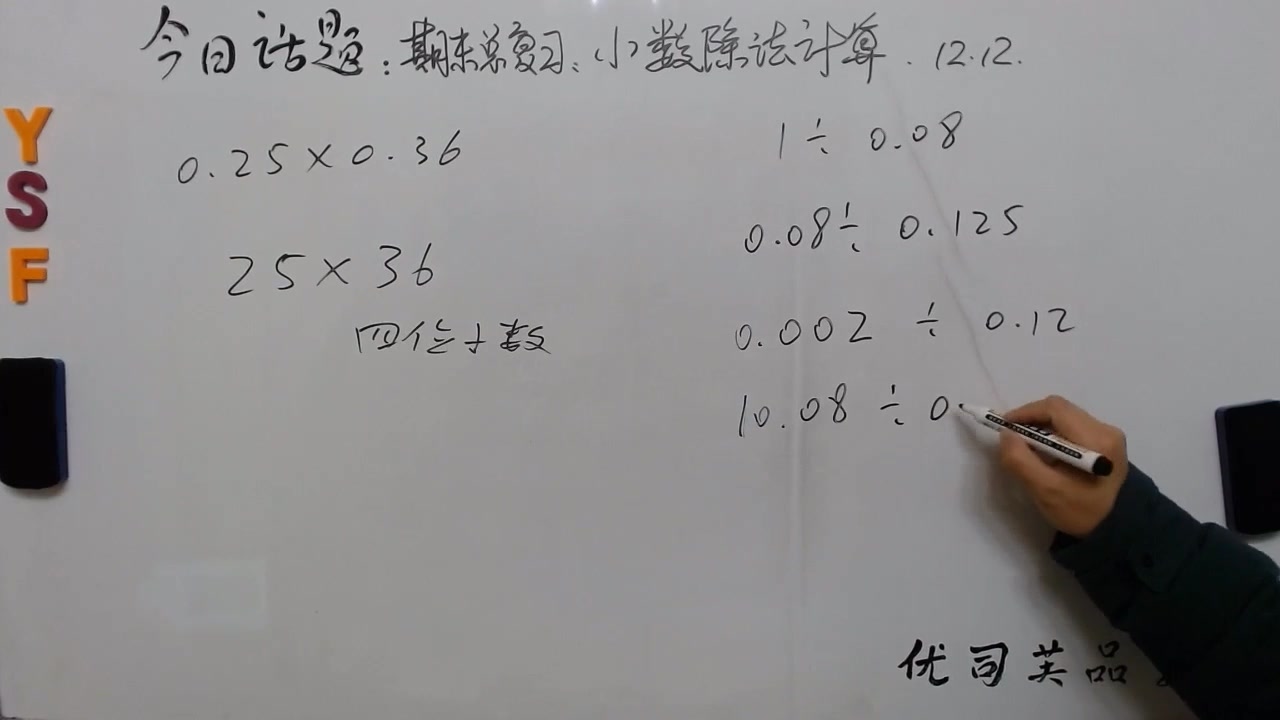 今日话题:期末总复习、小数除法计算. 12.12.
Y
S
F
0.25×0.36
25×36
四位小数
1÷0.08
0.08÷0.125
0.002÷0.12
10.08÷0.
优司芙品